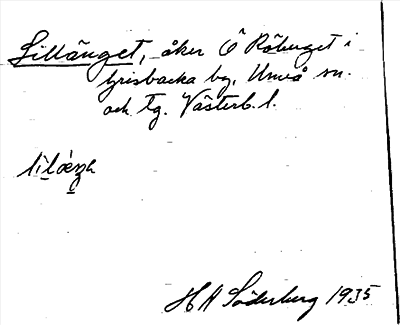 Lillänget, åker Ö Röbuget i
Grisbacka by, Umeå sn.
och tg. Västerb. l.
H A Söderberg 1935